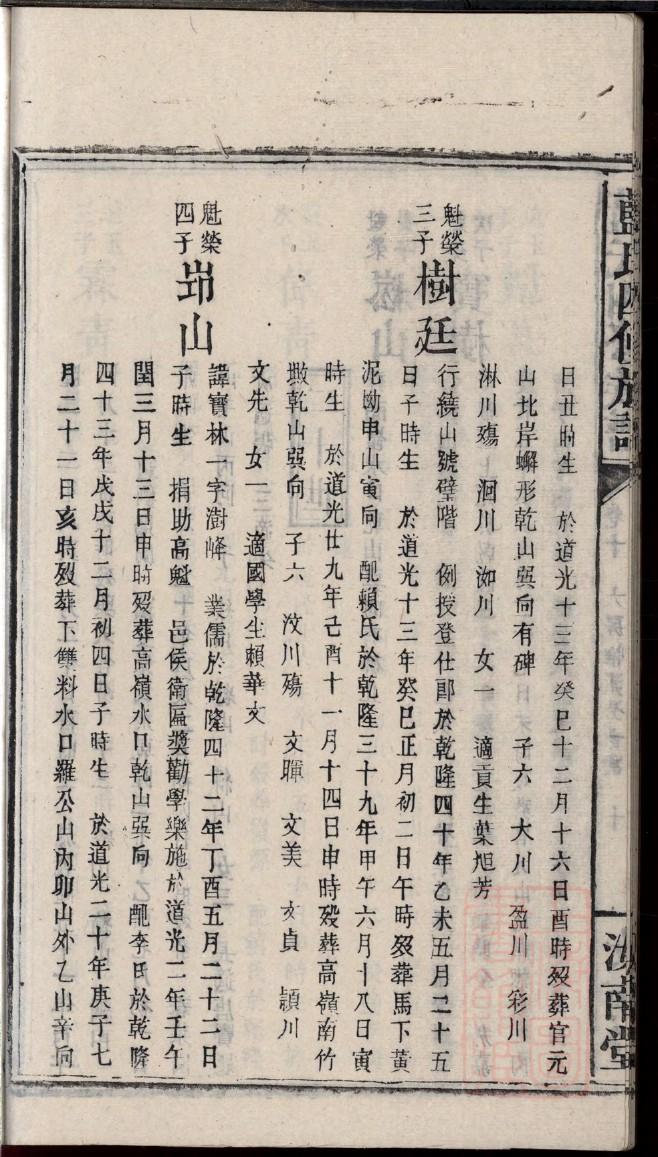 藍氏四修族譜
汝南堂
日丑時生 於道光十三年癸巳十二月十六日酉時歿葬官元
山北岸蠏形乾山巽向有碑 子六 大川 盈川 彩川
淋川殤 洄川 沕川 女一 適貢生葉旭芳
魁榮三子 樹廷
行繞山號璧階 例授登仕郎於乾隆四十年乙未五月二十五
日子時生 於道光十三年癸巳正月初二日午時歿葬馬下黃
泥坳申山寅向 配賴氏於乾隆三十九年甲午六月十八日寅
時生 於道光廿九年己酉十一月十四日申時歿葬高嶺南竹
墩乾山巽向 子六 汶川殤 文暉 文美 文貞 頴川
文先 女一 適國學生賴華文
魁榮四子 岇山
諱寶林一字澍峰 業儒於乾隆四十二年丁酉五月二十二日
子時生 捐助高魁 邑侯衛匾獎勸學樂施於道光二年壬午
閏三月十三日申時歿葬高嶺水口乾山巽向 配李氏於乾隆
四十三年戊戌十二月初四日子時生 於道光二十年庚子七
月二十一日亥時歿葬下雙料水口羅公山內卯山外乙山辛向